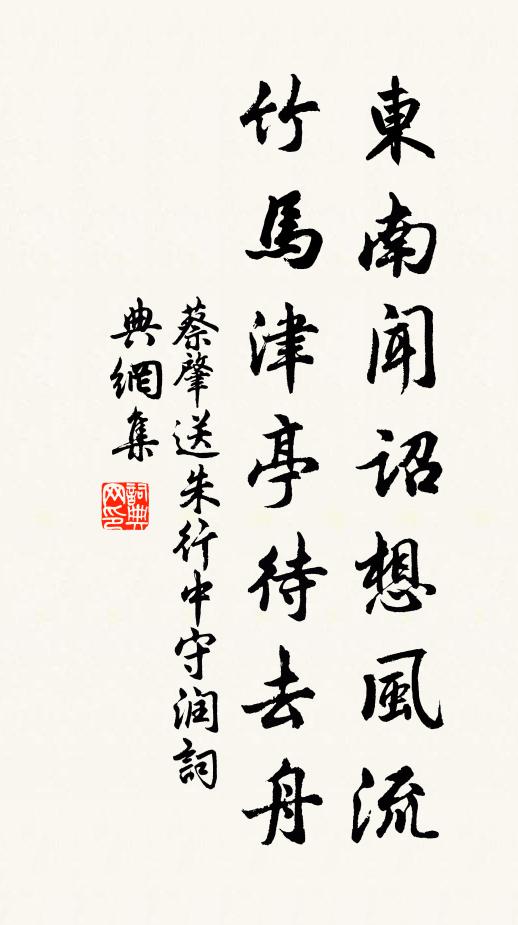 東南聞詔想風流
竹馬津亭待去舟
蔡肇送朱行中守润詞
典網集
詞典
网印